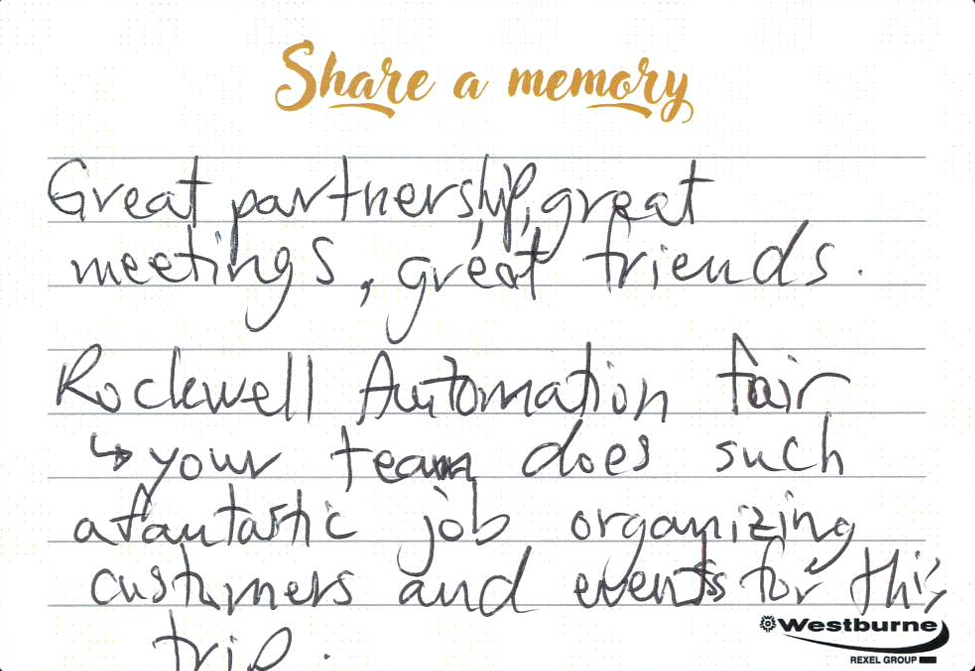 Share a memory
Great partnership, great
meetings, great friends.
Rockwell Automation fair
↳ your team does such
a fantastic job organizing
customers and events for this
trip.
Westburne
REXEL GROUP